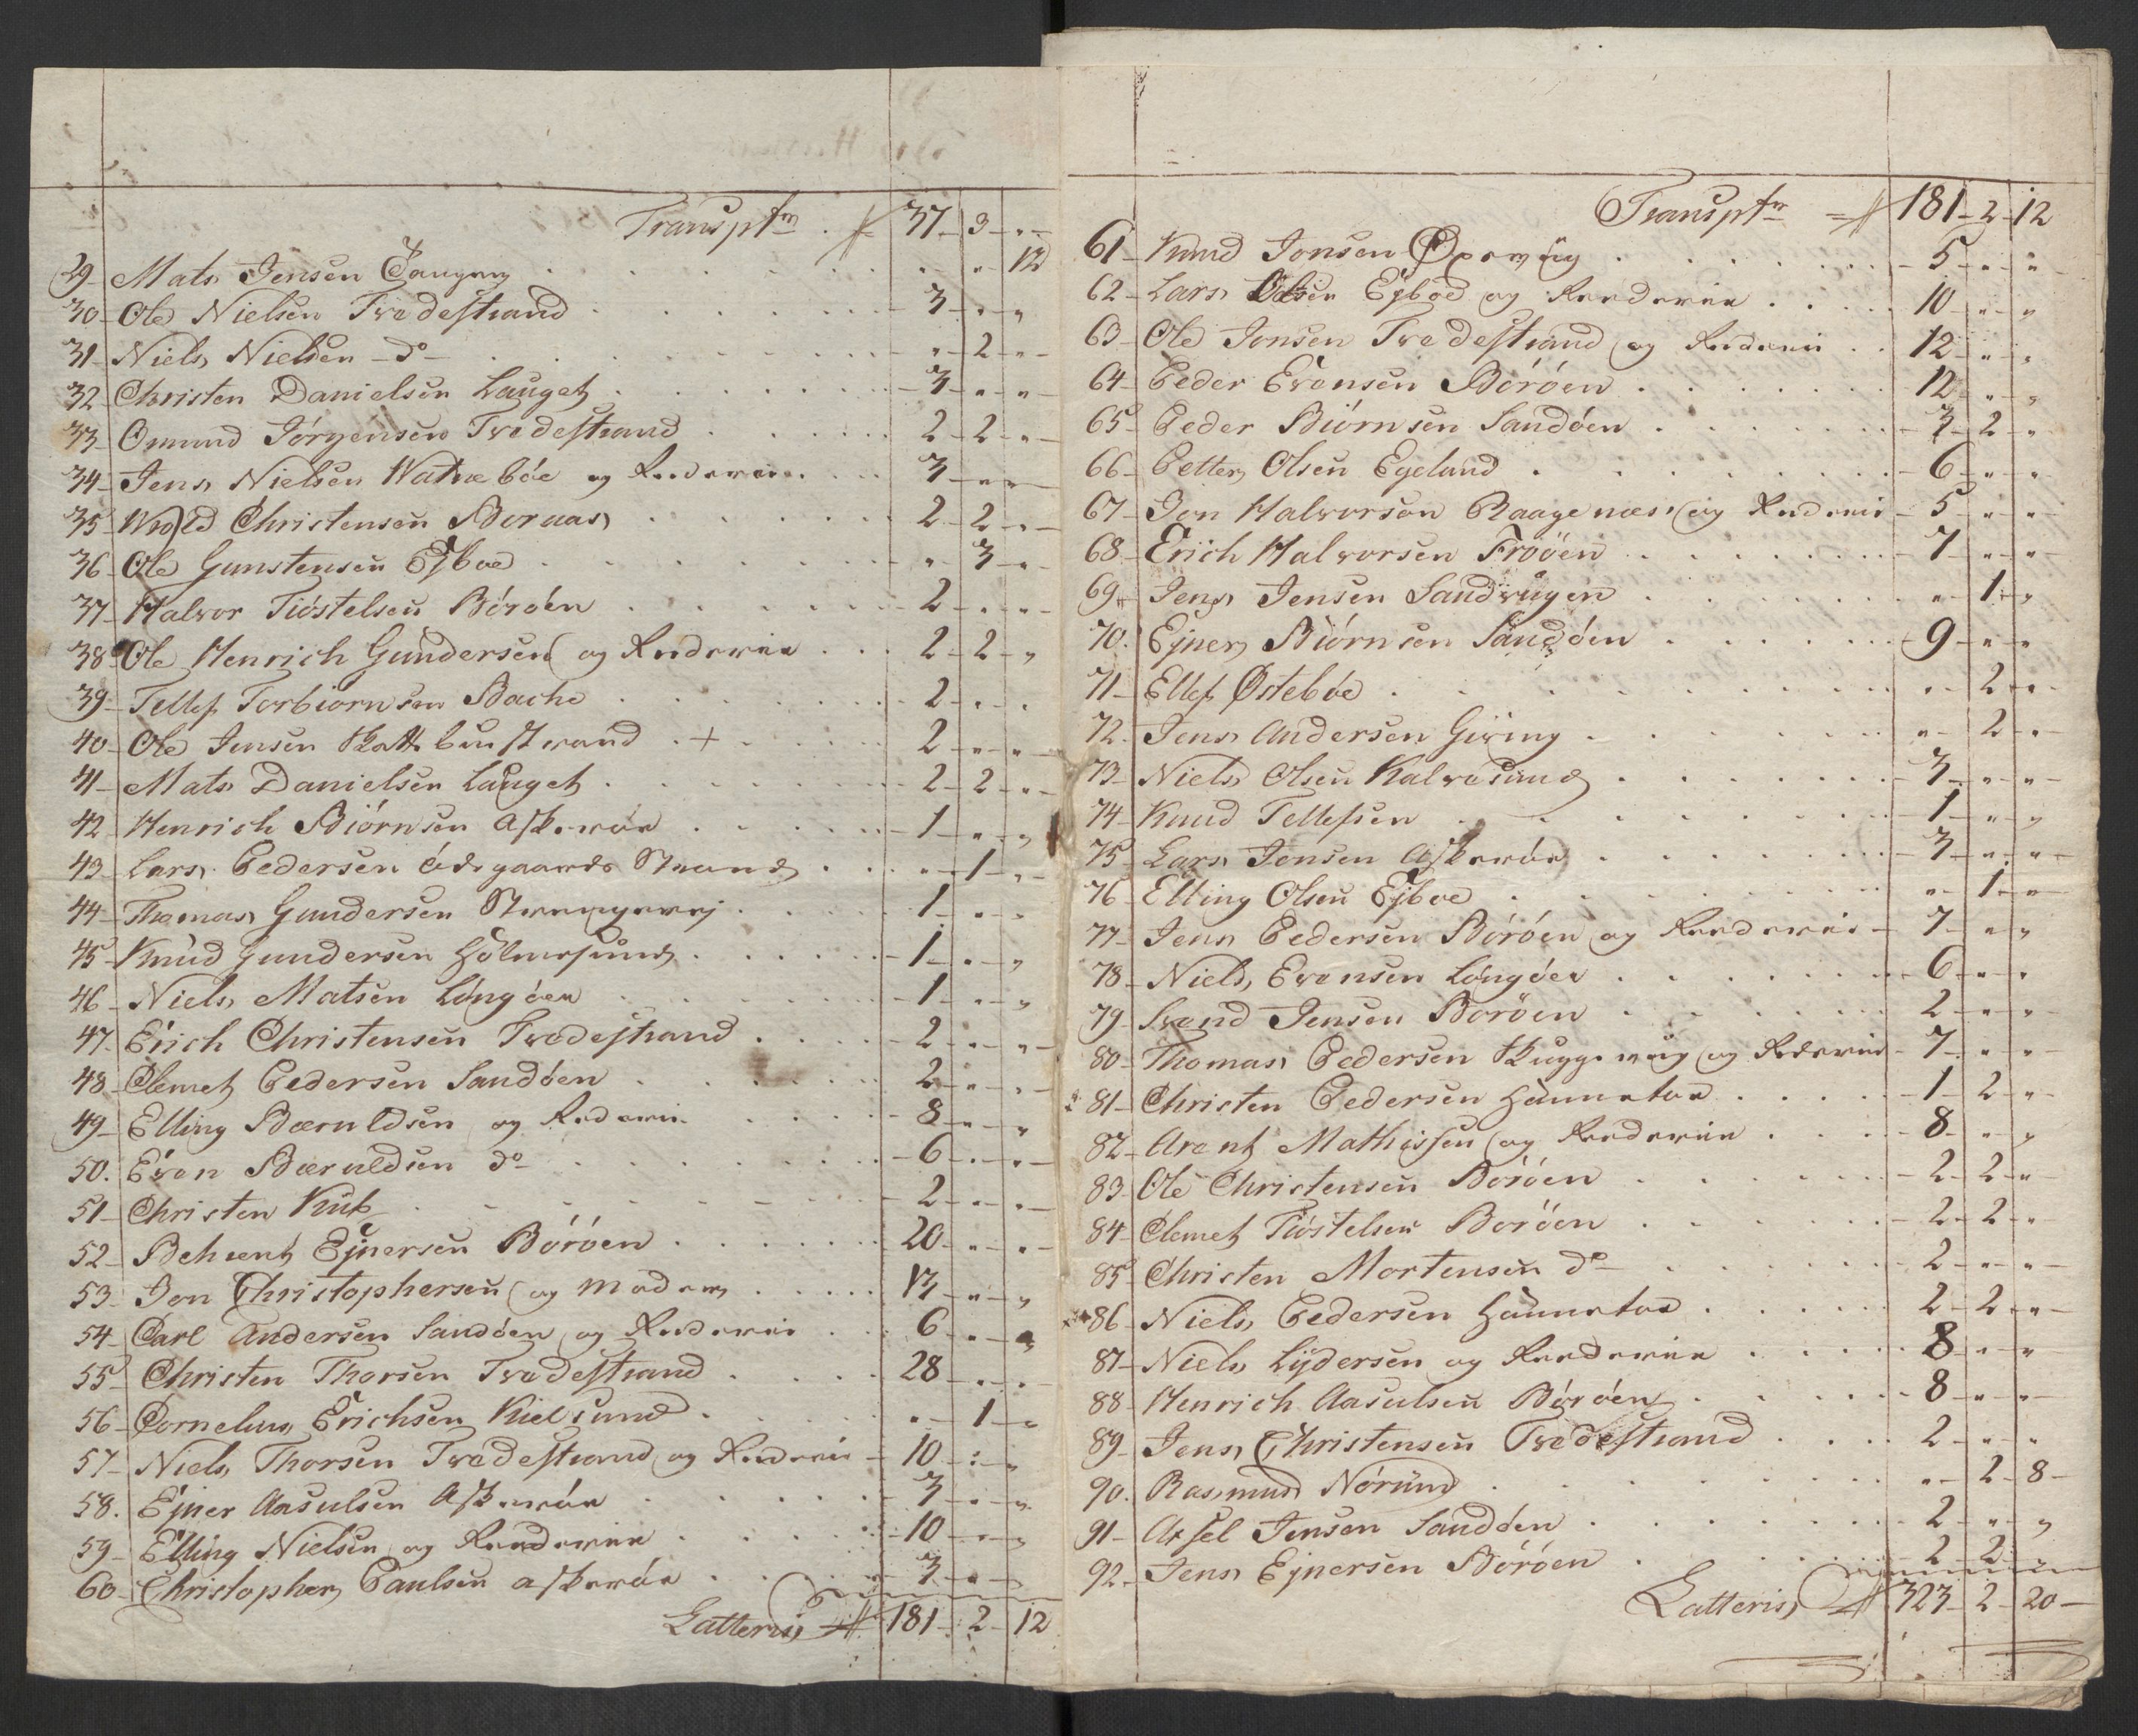 Transptr. 37 - 3 - „ -
29 - Mats Jensen Hougen . . . „ - „ 12
30 - Ole Nielsen Tvedestrand . . . 3 - „ - „
31 - Niels Nielsen - do - . . . „ - 2 - „ -
32 Christen Danielsen Lauget . . . 3 - „ - „ -
33 - Omund Jörgensen Tvedestrand . . . 2 - 2 - „ -
34 - Jens Nielsen Watneböe og Rederie . . . 3 - „ - „
35 - Wrold Christensen Boraas . . . 2 - 2 - „ -
36 - Ole Gunstensen Ejboe . . . „ - 3 - „
37 - Halvor Tiöstelsen Böröen . . . 2 - „ - „ -
38 - Ole Henrich Gundersen og Rederie . . . 2 - 2 - „
39 - Tellef Torbiornsen Bache . . . 2 - „ - „
40 - Ole Jensen Skattebuestrand . + . . . 2 - „ - „ -
41 - Mats Danielsen Lauget . . . 2 - 2 - „ -
42 - Henrich Biörnsen Askeröe . . . 1 - „ - „
43 - Lars Pedersen Ödegaards Strand . . . „ - 1 - „ -
44 - Thomas Gundersen . . . 1 - „ - „
45 - Knud Gundersen Holmesund . . . 1 - „ - „
46 - Niels Matsen Löngöen . . . 1 - „ - „
47 - Erich Christensen Tvedestrand . . . 2 - „ - „ -
48 - Clemet Pedersen Sandöen . . . 2 - „ - „ -
49 - Elling Bæruldsen og Rederie . . . 8 - „ - „
50. Even Bæruldsen do . . . 6 - „ - „ -
51 - Christen . . . 2 - „ - „ -
52 - Behrent Ejnersen Böröen . . . 20 - „ - „ -
53 - Jon Christophersen og Moder . . . 13 - „ - „
54 - Carl Andersen Sandöen og Rederie . . . 6 - „ - „
55 - Christen Thorsen Tvedestrand . . . 28 - „ - „
56 - Cornelius Erichsen Kielsund . . . „ - 1 - „
57 - Niels Thorsen Tvedestrand og Rederie - 10 - „ - „
58. Ejner Aasulsen Askeröe . . . 3 - „ - „
59 - Elling Nielsen og Rederie . . . 10 - „ - „
60 - Christopher Paulsen Askeröe . . . 3 - „ -
Latteris 181 - 2 - 12
Transptr 181 - 2 - 12
61 - Knud Jonsen Öxevüg . . . 5 - „ - „
62 - Lars Olsen Ejboe og Rederie . . . 10 - „ - „
63 - Ole Jonsen Tvedestrand og Rederie . . 12 - „ - „
64 - Peder Evensen Böröen . . . 12 - „ - „
65 - Peder Biörnsen Sandöen . . . 3 - 2 - „
66 - Petter Olsen Egeland . . . 6 - „ - „
67 - Jon Halvorsen Raagenæs og Rederie - 5 - „ - „
68 - Erich Halvorsen Frööen . . . 7 - „ - „ -
69 - Jens Jensen Sandvügen . . . „ - 1 - „
70. Ejner Biörnsen Sandöen . . . 9 - „ - „
71 - Ellef Östeböe . . . „ - 2 - „ -
72 - Jens Andersen Giving . . . „ - 2 - „ -
73 - Niels Olsen Kalvesund . . . 3 - „ - „ -
74 - Knud Tellefsen . . . 1 - „ - „
75 - Lars Jensen Askeröe . . . 3 - „ - „ -
76 - Elling Olsen Ejboe . . . „ - 1 - „ -
77 - Jens Pedersen Böröen og Rederie - 7 - „ - „
78 - Niels Evensen Löngöen . . . 6 - „ - „
79 - Svend Jensen Böröen . . . 2 - „ - „
80 - Thomas Pedersen Skuggevüg og Rederie - 7 - „ - „
81 - Christen Pedersen Hannetoe . . . 1 - 2 - „ -
82 - Arent Mathisen og Rederie . . . 8 - „ - „
83 - Ole Christensen Böröen . . . 2 - 2 - „ -
84 - Clemet Tiöstelsen Böröen . . . 2 - 2 - „ -
85 - Christen Mortensen do . . . 2 - „ - „ -
86 - Niels Pedersen Hannetoe . . . 2 - 2 - „ -
87 - Niels Lydersen og Rederie . . . 8 - „ - „
88 - Henrich Aasulsen Böröen . . . 8 - „ - „ -
89 - Jens Christensen Tvedestrand . . . 2 - „ - „
90. Rasmus Nörün . . . „ - 2 - 8 -
91 - Axsel Jensen Sandöen . . . 2 - „ - „
92 - Jens Ejnersen Böröen . . . 2 - 2 - „
Latteris 323 - 2 - 20 -